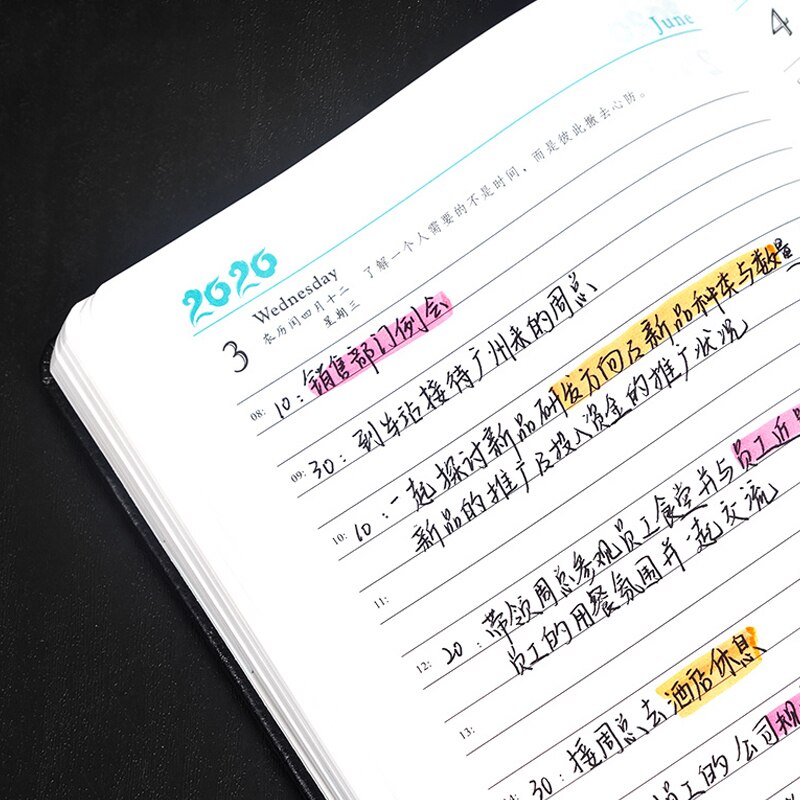 June
4
2020
3 Wednesday 了解一个人需要的不是时间，而是彼此撤去心防。
农历闰四月十二
星期三
08: 10：销售部门例会
09: 30：到车站接待广州来的周总
10: 10：一起探讨新品研发方向后新品种类与数量
新品的推广后投入资金的推广状况
11:
12: 20：带领周总参观员工食堂并与员工近
员工的用餐氛围并一起交流
13:
30：接周总去酒店休息
员工的公司规